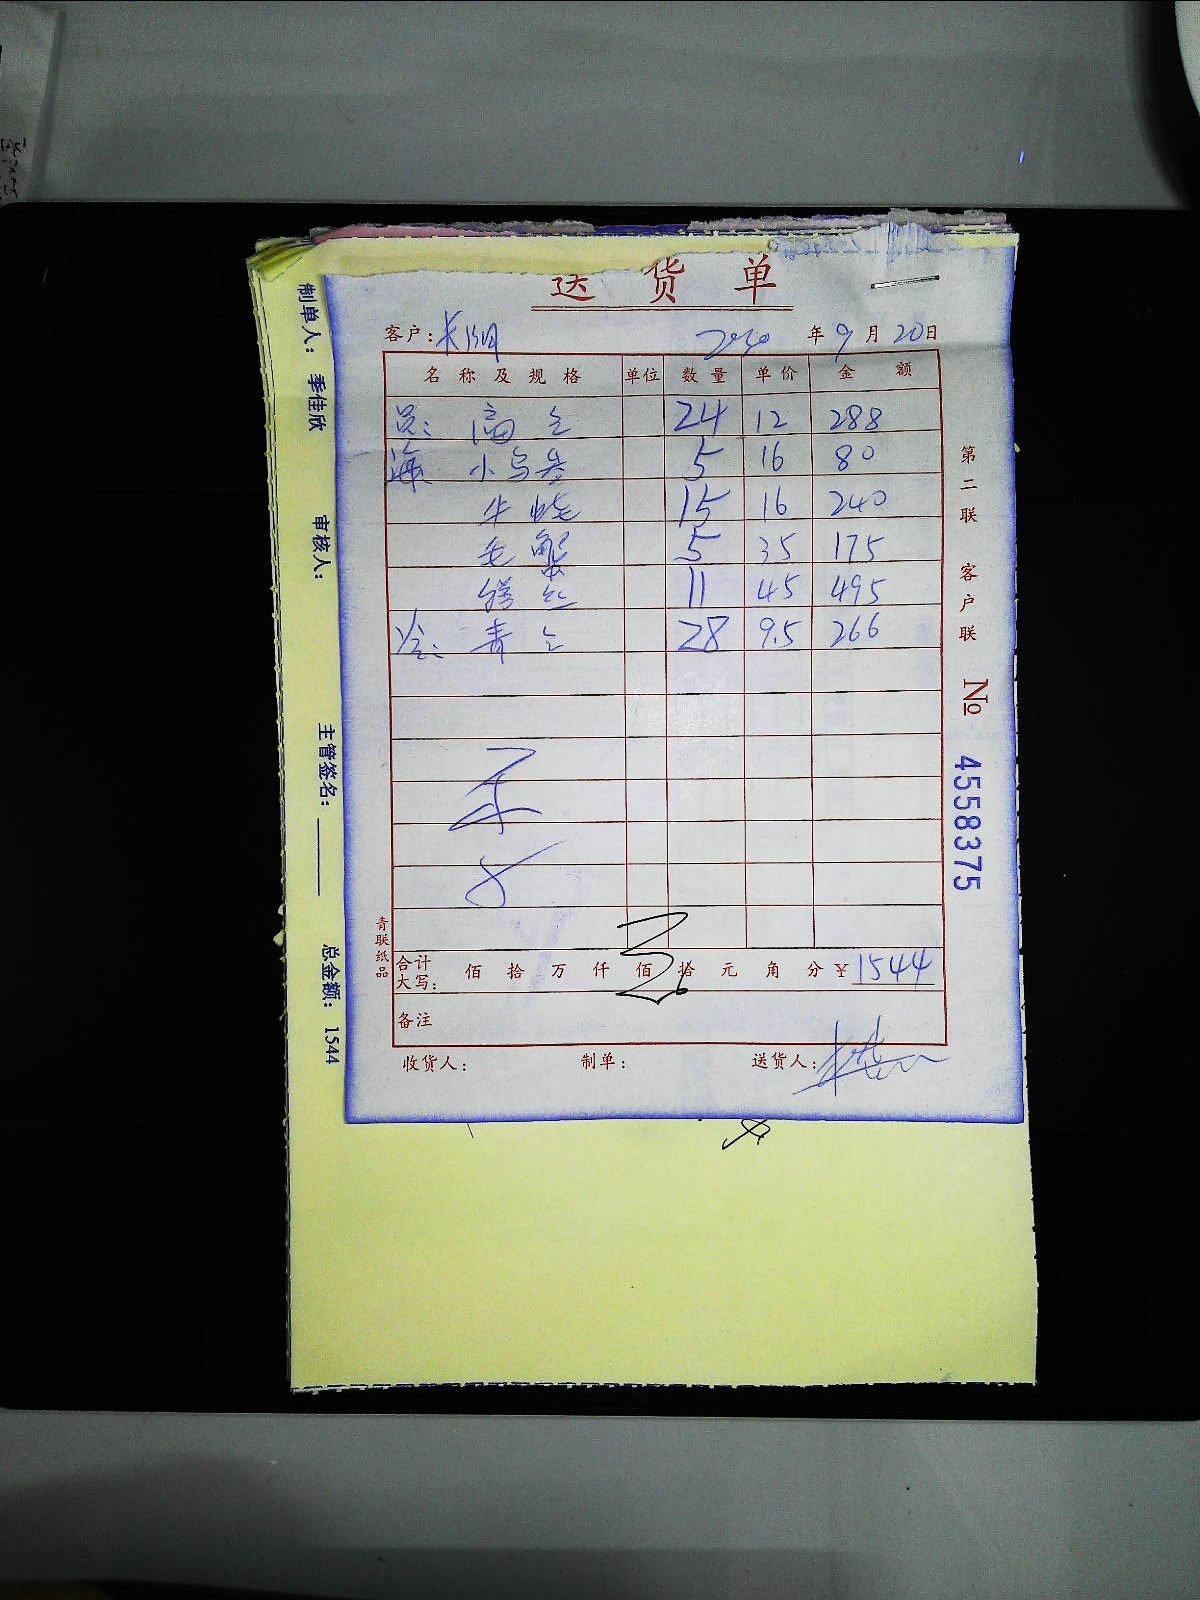 送 货 单
客户: 年 9 月 20 日
名 称 及 规 格 单位 数 量 单 价 金 额
24 12 288
海 小乌 5 16 80
牛 15 16 240
毛蟹 5 35 175
11 45 495
青 28 9.5 266
合计大写: 佰 拾 万 仟 佰 拾 元 角 分 ¥ 1544
备注
收货人: 制单: 送货人:
第二联 客户联 № 4558375
青联纸品
制单人: 季佳欣 审核人: 主管签名: 总金额: 1544